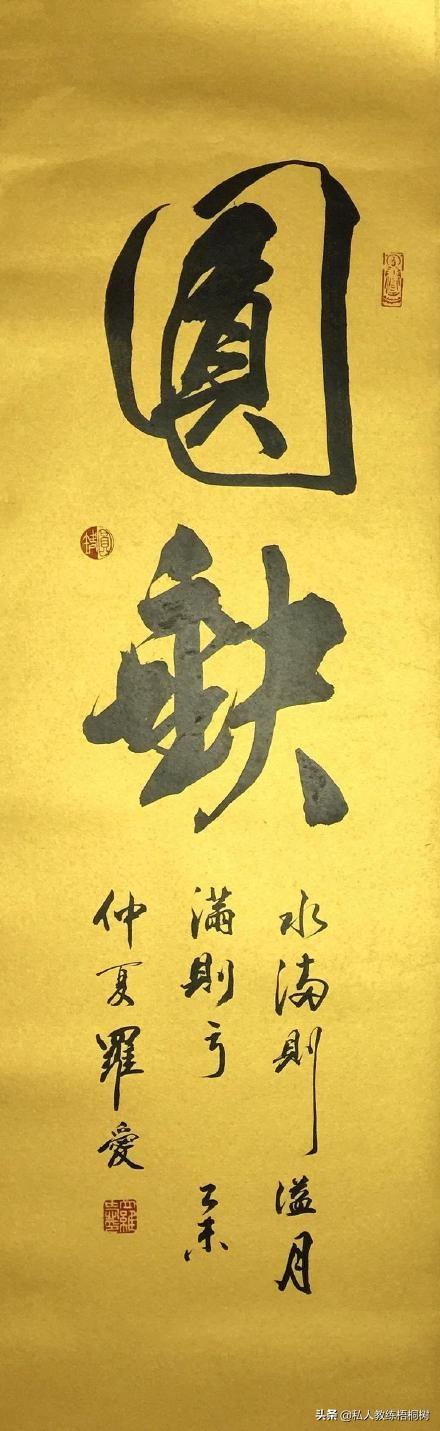 圓缺
水滿則溢月
滿則亏 乙未
仲夏羅愛
头条 @私人教练梧桐树